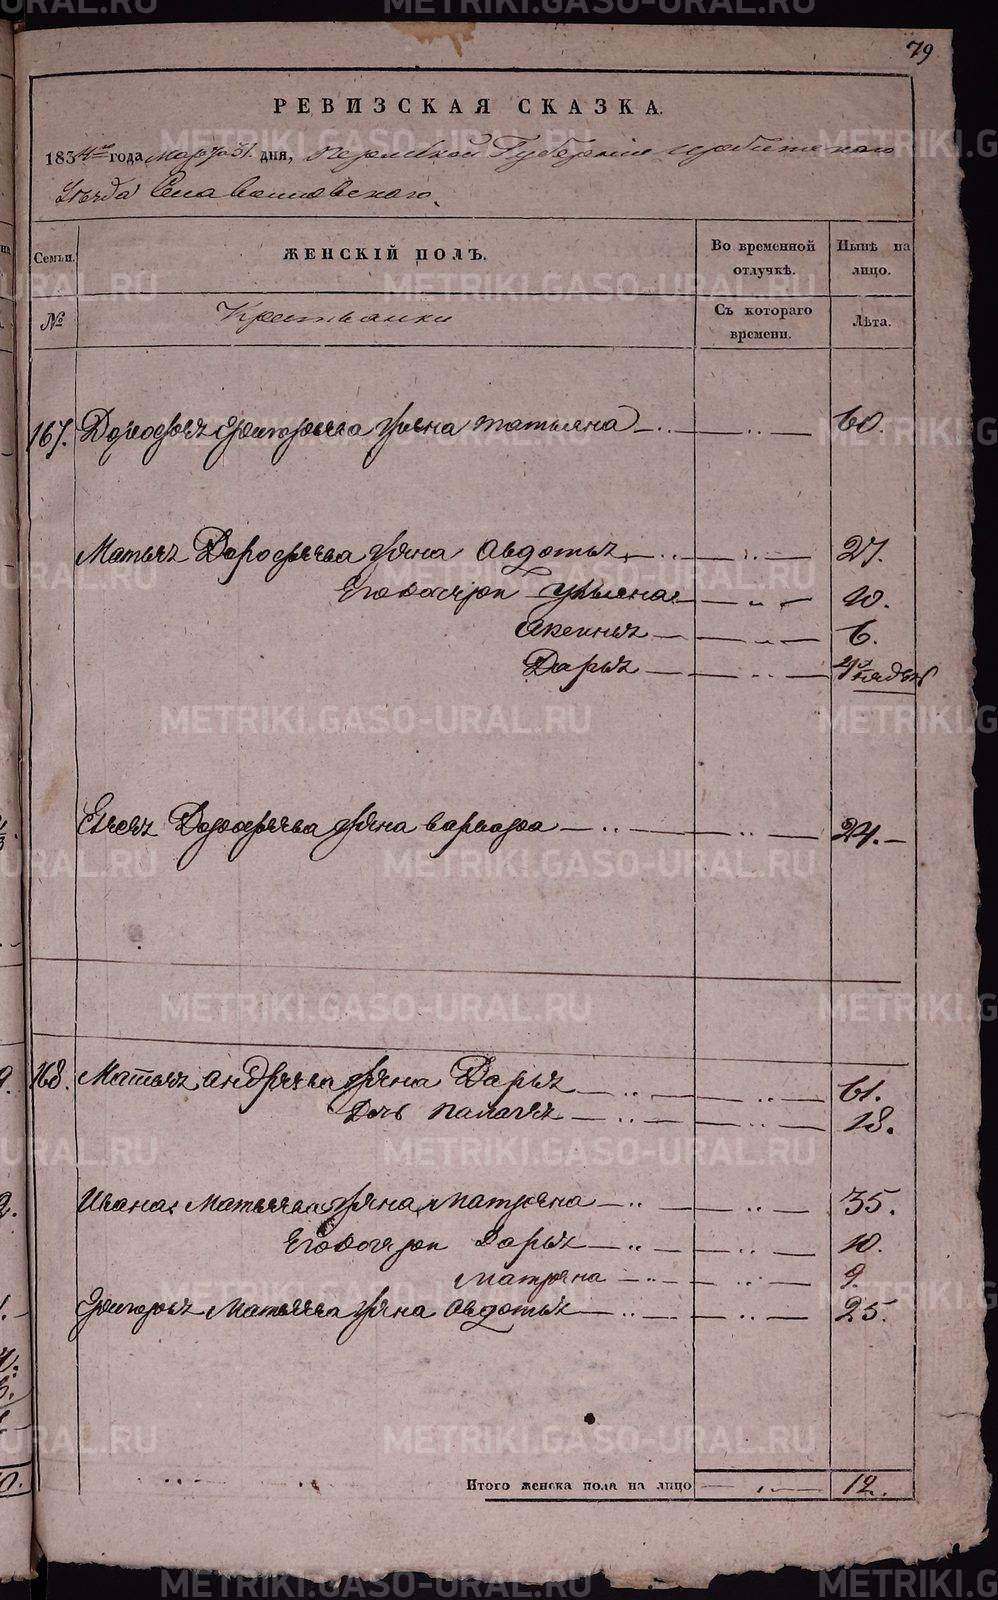 79
РЕВИЗСКАЯ СКАЗКА.
1834го года марта 31. дня, Пермской Губернии Ирбитскаго
Уѣзда Села
Семьи. ЖЕНСКІЙ ПОЛЪ. Во временной отлучкѣ. Нынѣ на лицо.
№ Крестьянки Съ котораго времени. Лѣта.
167. Дорофея жена татьяна — .. — — .. — 60.
Матвея Дорофеева жена Авдотья — .. — — .. — 27.
Его дочери Ульяна — — .. — 10.
Аксинья — — .. — 6.
Дарья — — .. — недѣл
Елисея Дорофеева жена варвара — .. — — .. — 24. —
168. Матвея андреева жена Дарья — .. — — .. — 61.
Дочь палагея — .. — — .. — 18.
Ивана Матвеева жена матрена — .. — — .. — 35.
Его дочери Дарья — .. — — .. — 10.
матрена — .. — — .. — 9.
Григорья Матвеева жена Авдотья — .. — — .. — 25.
Итого женска пола на лицо — .. — 12.
METRIKI.GASO-URAL.RU